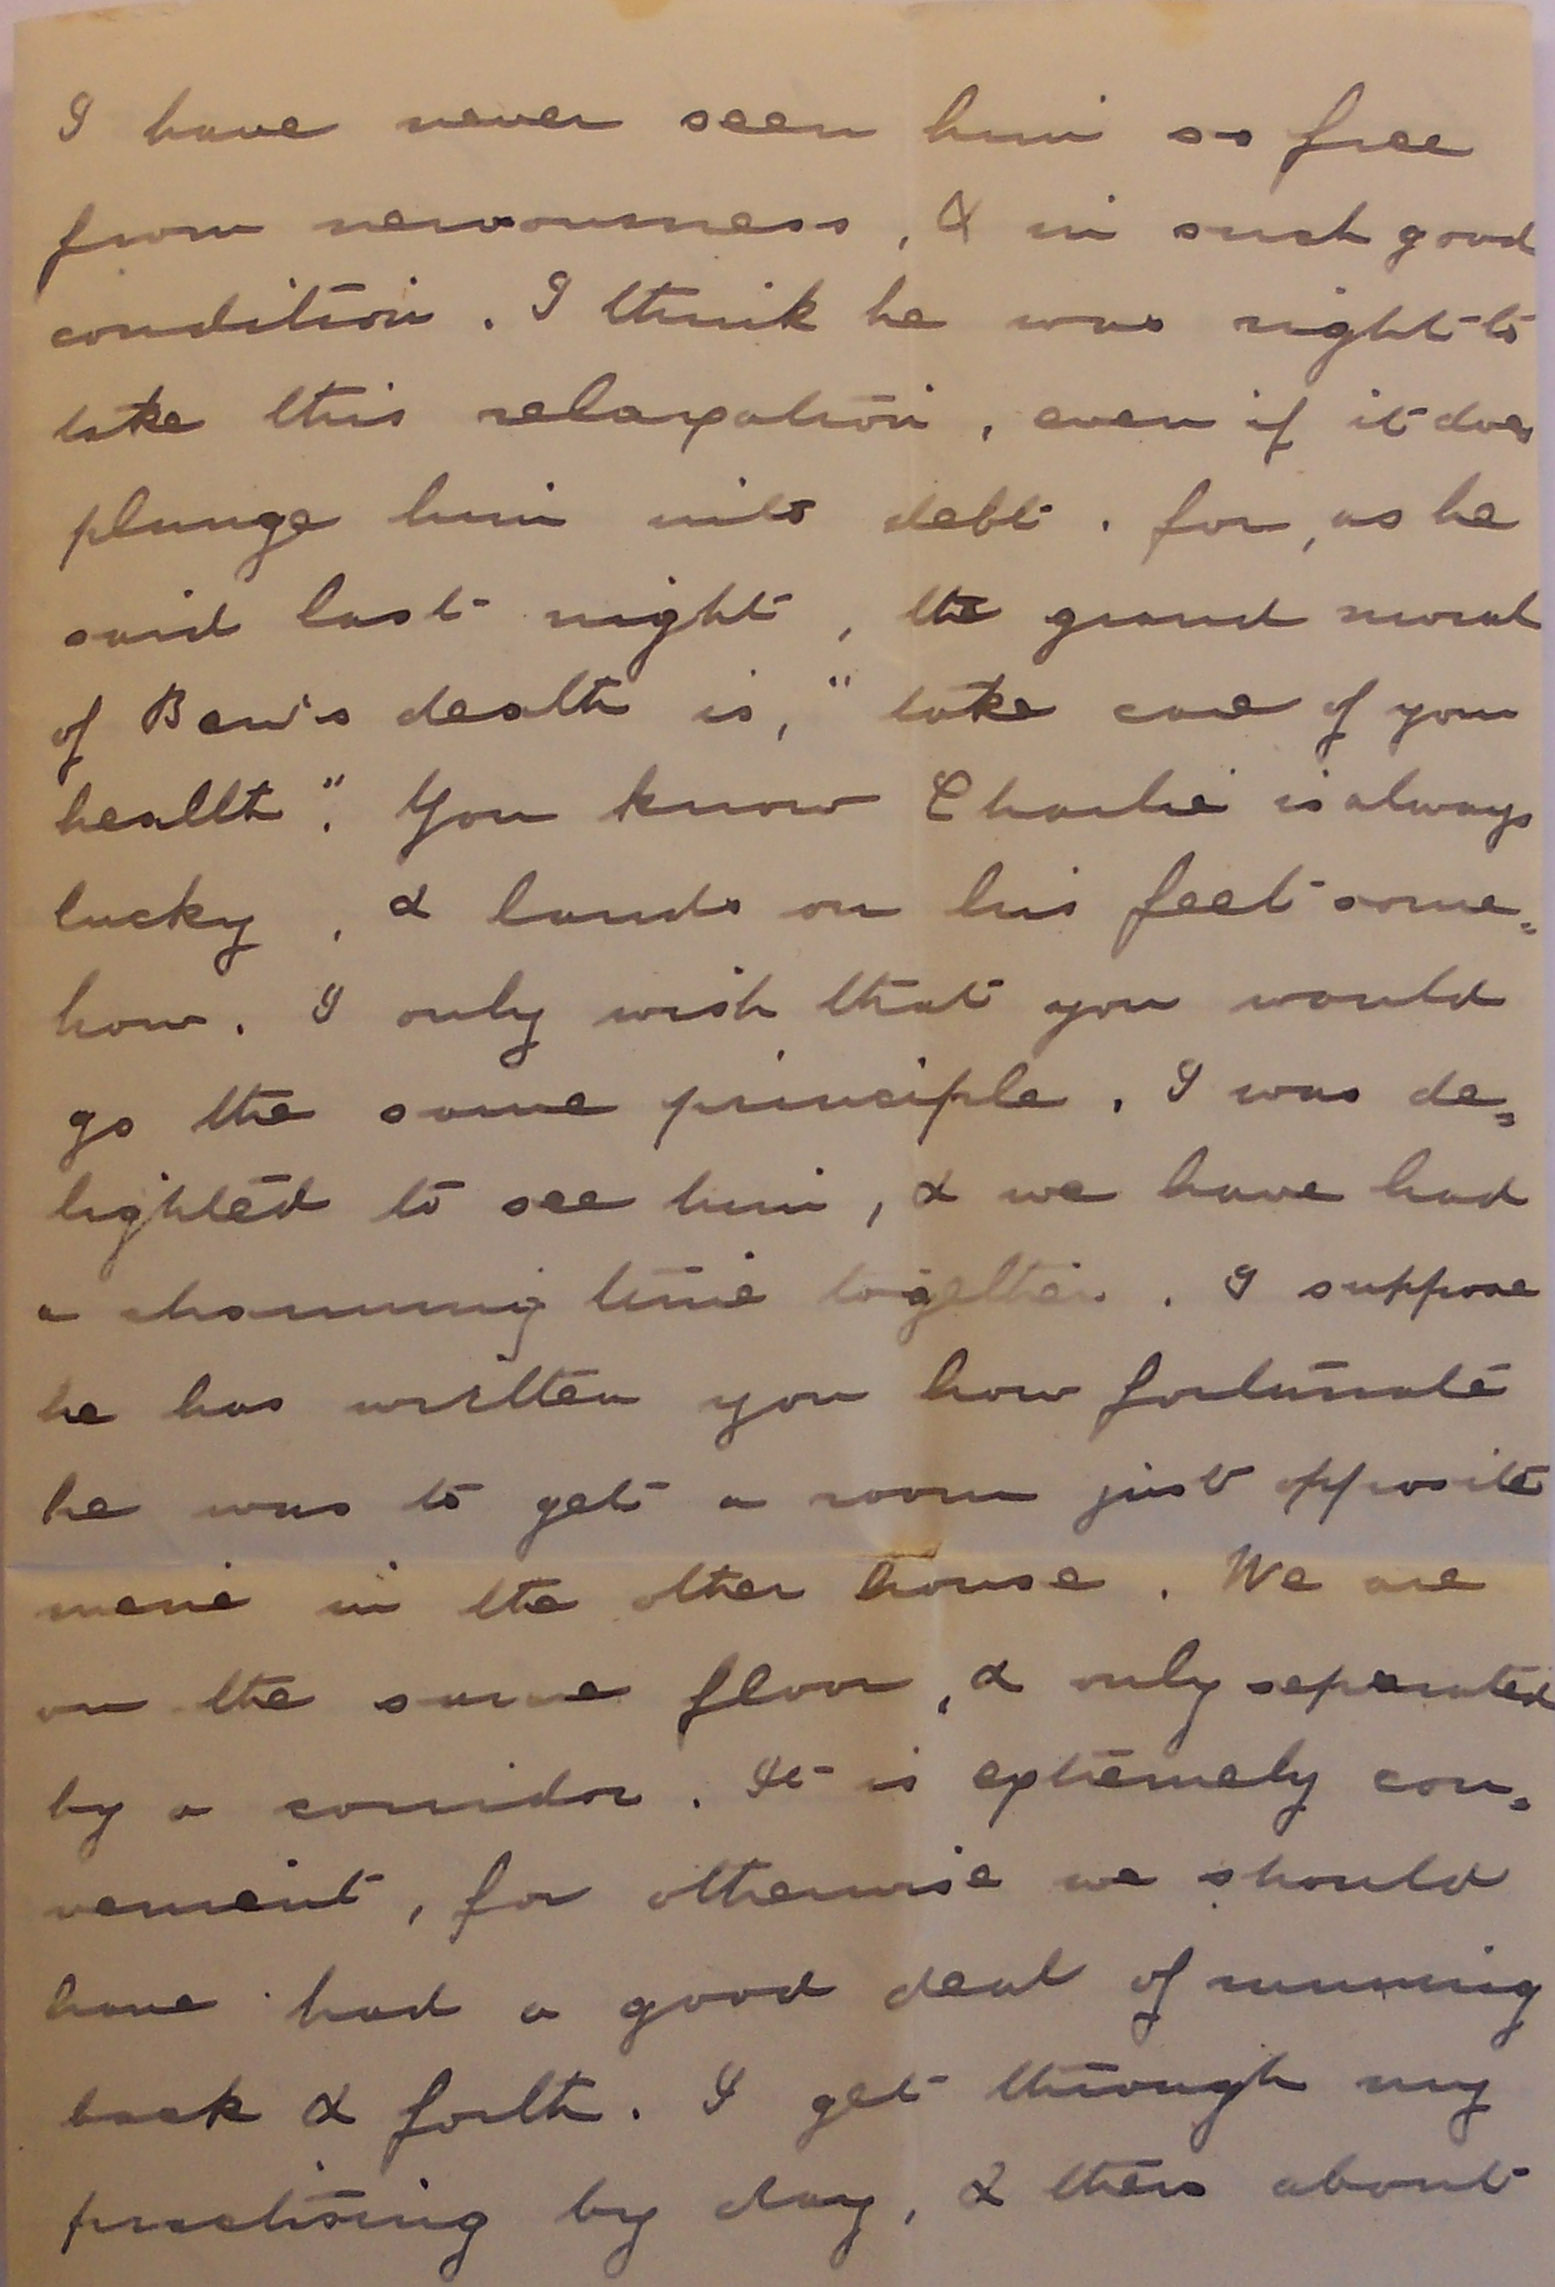 I have never seen him so free
from nervousness, & in such good
condition. I think he was right to
take this relaxation, even if it does
plunge him into debt. for, as he
said last night, the grand moral
of Ben's death is, "take care of your
health". You know Charlie is always
lucky, & lands on his feet some=
how. I only wish that you would
go the same principle. I was de=
lighted to see him, & we have had
a charming time together. I suppose
he has written you how fortunate
he was to get a room just opposite
mine in the other house. We are
on the same floor, & only separated
by a corridor. It is extremely con=
venient, for otherwise we should
have had a good deal of running
back & forth. I get through my
practising by day, & then about